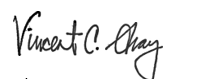 Vincent C. Chay